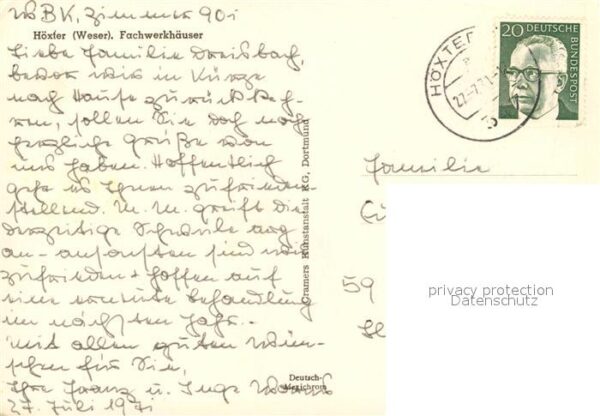 WBK, Zimmer 901
Höxter (Weser). Fachwerkhäuser
Liebe Familie Dreisbach,
bevor wir in Kürze
nach Hause zurückkeh-
ren, sollen Sie doch noch
herzliche Grüße von
uns haben. Hoffentlich
geht es Ihnen zufrieden-
stellend. M. M. greift die
derzeitige Schwüle arg
an - ansonsten sind wir
zufrieden + hoffen auf
eine erneute Behandlung
im nächsten Jahr.-
Mit allen guten Wün-
schen für Sie,
Ihre Franz u. Inge
27. Juli 1971
Cramers Kunstanstalt KG, Dortmund
Deutsch-
Mexichrom
HÖXTER
20 DEUTSCHE
BUNDESPOST
Familie
59
privacy protection
Datenschutz